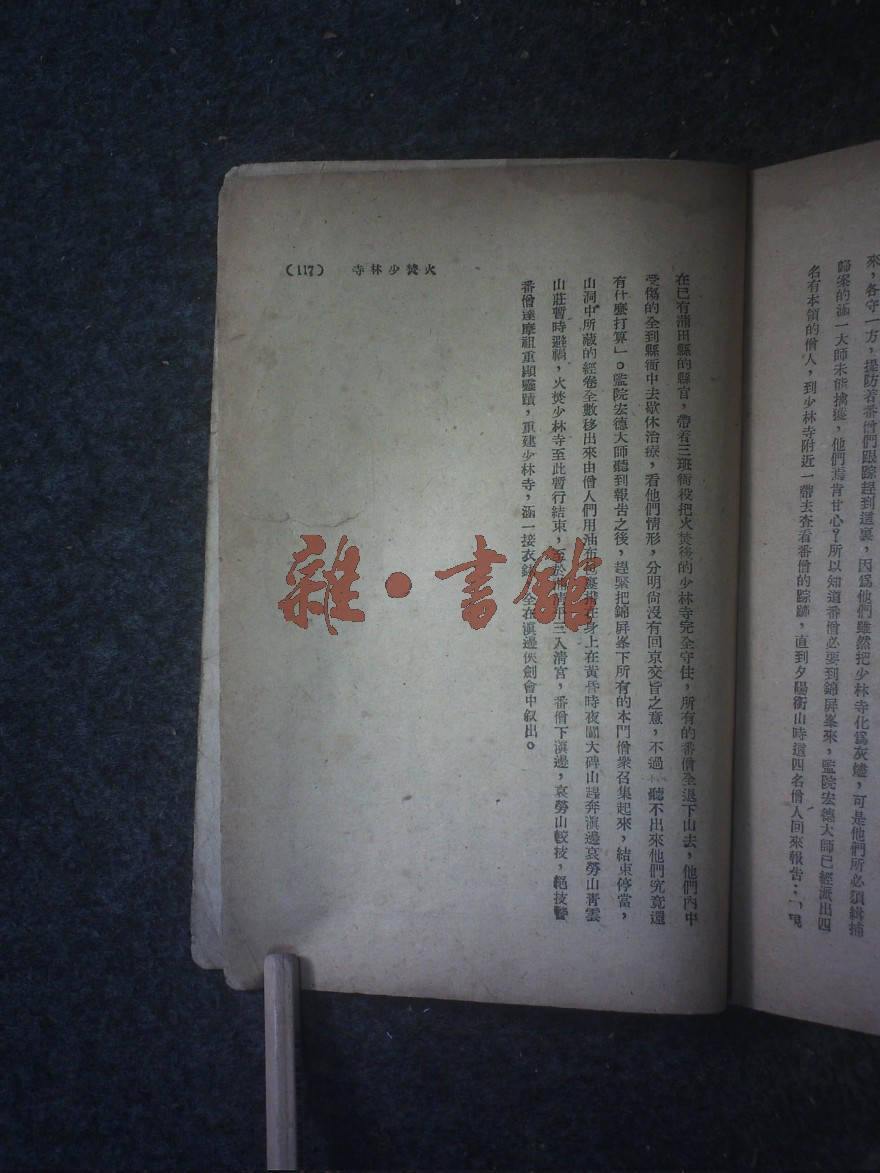 來，各守一方，提防着番僧們跟踪趕到這裏，因爲他們雖然把少林寺化爲灰燼，可是他們所必須緝捕
歸案的涵一大師未能擒獲，他們焉肯甘心？所以知道番僧必要到錦屏峯來，監院宏德大師已經派出四
名有本領的僧人，到少林寺附近一帶去查看番僧的踪跡，直到夕陽銜山時這四名僧人回來報告：「現
在已有莆田縣的縣官，帶着三班衙役把火焚後的少林寺完全守住，所有的番僧全退下山去，他們內中
受傷的全到縣衙中去歇休治療，看他們情形，分明尙沒有回京交旨之意，不過 聽不出來他們究竟還
有什麼打算」。監院宏德大師聽到報告之後，趕緊把錦屏峯下所有的本門僧衆召集起來，結束停當，
山洞中所藏的經卷全數移出來由僧人們用油布 在身上在黃昏時夜闖大碑山趕奔滇邊哀勞山靑雲
山莊暫時避禍，火焚少林寺至此暫行結束，至於 三入清宮，番僧下滇邊，哀勞山較技，絕技警
番僧達摩祖重顯靈蹟，重建少林寺，涵一接衣鉢，全在滇邊俠劍會中叙出。
火焚少林寺 (117)
雜·書館